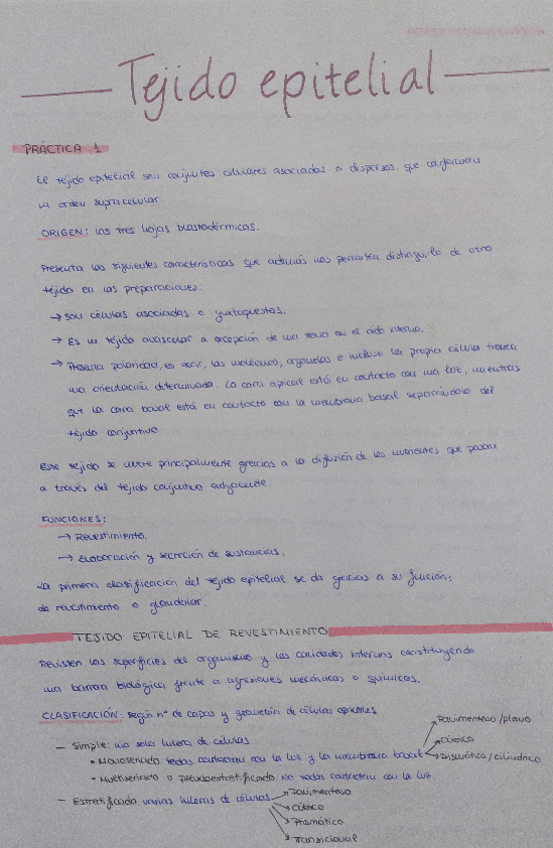 Tejido epitelial
PRÁCTICA 1
El tejido epitelial son conjuntos celulares asociados o dispersos, que conforman
un orden supracelular.
ORIGEN: las tres hojas blastodérmicas.
Presenta las siguientes características que además nos permiten distinguirlo de otro
tejido en las preparaciones:
→ Son células asociadas o yuxtapuestas.
→ Es un tejido avascular a excepción de una zona en el oído interno.
→ Presenta polaridad, es decir, las moléculas, orgánulos e incluso la propia célula tienen
una orientación determinada. La cara apical está en contacto con una luz, mientras
que la cara basal está en contacto con la membrana basal separándolo del
tejido conjuntivo.
Este tejido se nutre principalmente gracias a la difusión de los nutrientes que pasan
a través del tejido conjuntivo adyacente.
FUNCIONES:
→ Revestimiento.
→ Elaboración y secreción de sustancias.
La primera clasificación del tejido epitelial se da gracias a su función;
de revestimiento o glandular.
TEJIDO EPITELIAL DE REVESTIMIENTO
Revisten las superficies del organismo y las cavidades internas constituyendo
una barrera biológica frente a agresiones mecánicas o químicas.
CLASIFICACIÓN: según nº de capas y geometría de células apicales
– Simple: una sola hilera de células
• Monoseriado todas contactan con la luz y la membrana basal
Pavimentoso / plano
Cúbico
Prismático / cilíndrico
• Multiseriado o pseudoestratificado. No todas contactan con la luz.
– Estratificado, varias hileras de células
Pavimentoso
Cúbico
Prismático
Transicional